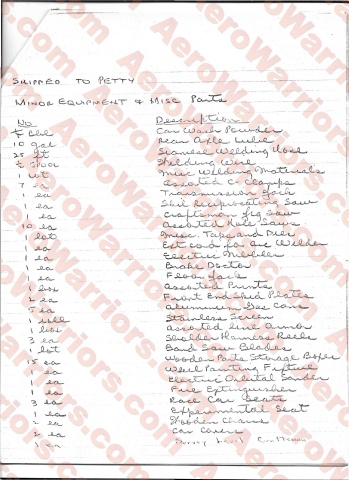 SHIPPED TO PETTY
MINOR EQUIPMENT & MISC Parts
No Description
Car Wash Powder
10 gal Rear Axle Lube
25 ft Siamese Welding Hose
Welding Wire
1 lot Misc Welding Materials
7 ea Assorted C Clamps
1 ea Transmission Jack
1 ea Skil Reciprocating Saw
1 ea Craftsman Jig Saw
10 ea Assorted Hole Saws
1 lot Misc. Taps and Dies
1 ea Ext cord for Arc Welder
1 ea Electric Nibbler
1 ea Brake Doctor
1 ea Floor Jack
1 box Assorted Paints
2 ea Front End Skid Plates
5 ea Aluminum Gas Cans
1 roll Stainless Screen
1 box Assorted line Armor
3 ea Shoulder Harness Reels
1 lot Band Saw Blades
15 ea Wooden Parts Storage Boxes
1 ea Wheel Painting Fixture
1 ea Electric Orbital Sander
1 ea Fire Extinguisher
3 ea Race Car Seats
1 ea Experimental Seat
2 ea Wooden Chairs
2 ea Car Covers
1 ea
AeroWarriors.com